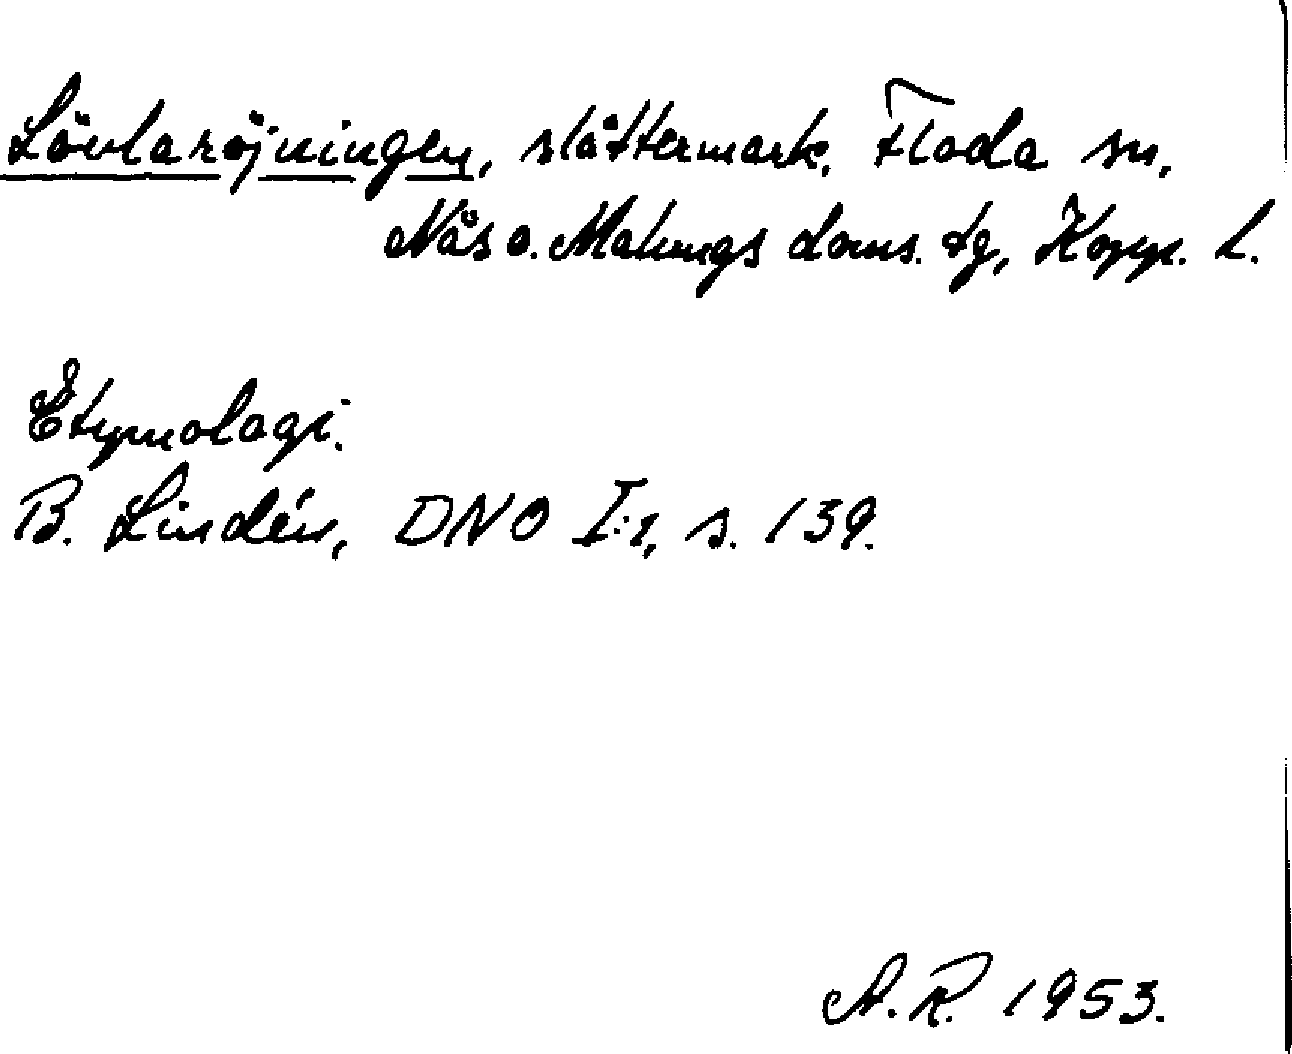 Lövlaröjningen, slåttermark, Floda sn,
Nås o. Malungs doms. tg, Kopp. L.
Etymologi.
B. Lindén, DNO I:1, s. 139.
A.R. 1953.